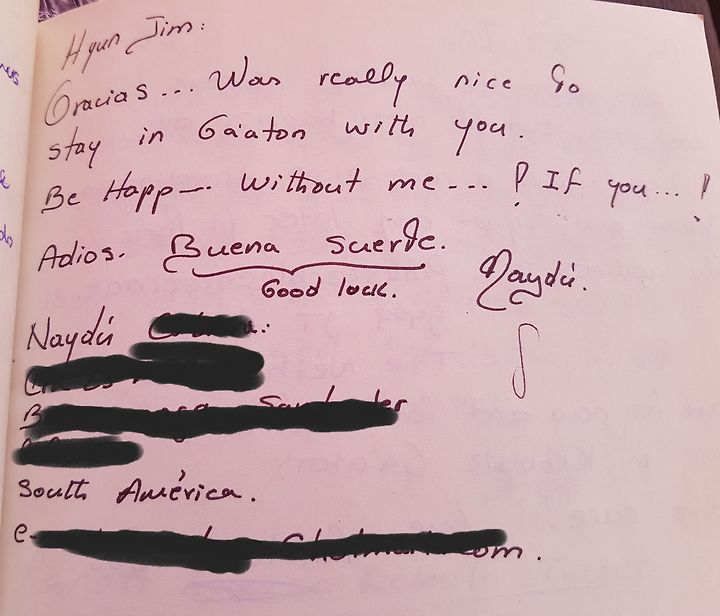 Hyun Jim:
Gracias... Was really nice to
stay in Ga'aton with you.
Be Happ—. Without me---! If you...!
Adios. Buena suerte.
Good lock.
Naydú.
Naydú
South América.